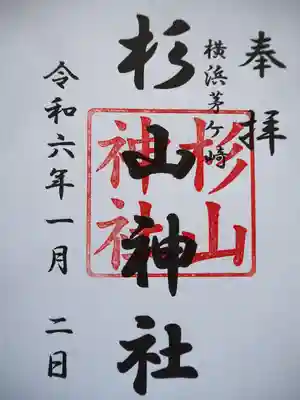 奉拝
横浜茅ケ崎
杉山神社
杉山
神社
令和六年一月二日